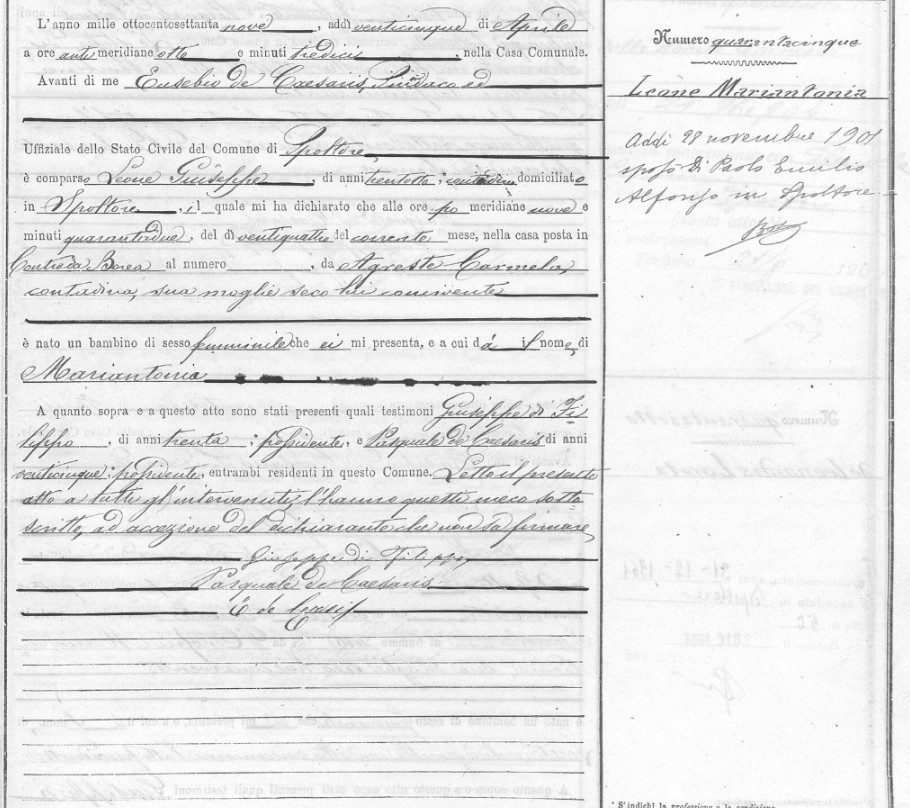 L'anno mille ottocentosettanta nove, addì venticinque di Aprile
a ore anti meridiane otto e minuti tredici, nella Casa Comunale.
Avanti di me Eusebio de Caesaris, Sindaco ed
Uffiziale dello Stato Civile del Comune di Spoltore
è comparso Leone Giuseppe, di anni trentotto, contadino domiciliato
in Spoltore, il quale mi ha dichiarato che alle ore po meridiane nove e
minuti quarantadue, del dì ventiquattro del corrente mese, nella casa posta in
Contrada Borea al numero , da Agreste Carmela,
contadina, sua moglie seco lui convivente
è nato un bambino di sesso femminile che ei mi presenta, e a cui dá il nome di
Mariantonia
A quanto sopra e a questo atto sono stati presenti quali testimoni Giuseppe di Fi
lippo, di anni trenta, possidente, e Pasquale de Caesaris di anni
venticinque, possidente, entrambi residenti in questo Comune. Letto il presente
atto a tutti gl'intervenuti, l'hanno questi meco sotto
scritto, ad accezione del dichiarante che non sa firmare
Giuseppe di Filippo
Pasquale de Caesaris
E de Caesaris
Numero quarantacinque
Leone Mariantonia
Addì 28 novembre 1901
sposò Di Paolo Emilio
Alfonso in Spoltore
* S'indichi la professione o la condizione